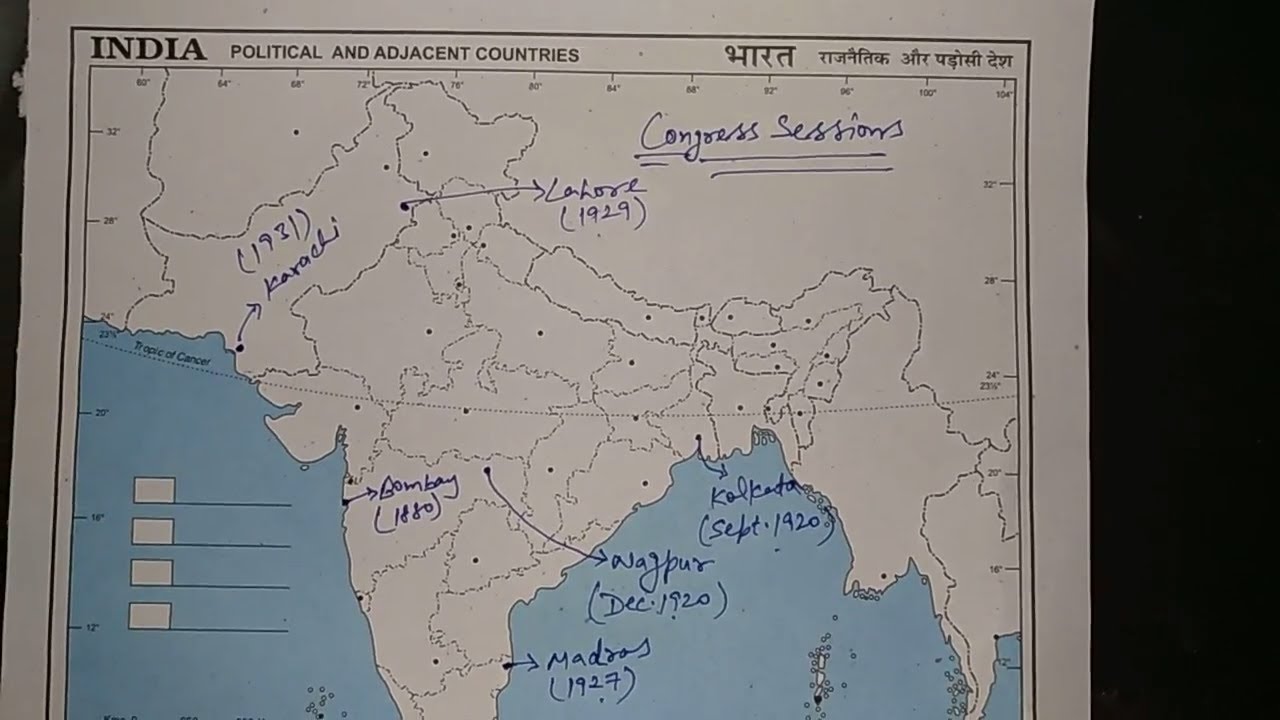 INDIA POLITICAL AND ADJACENT COUNTRIES
भारत राजनैतिक और पड़ोसी देश
60° 64° 72° 76° 80° 84° 88° 92° 96° 100° 104°
Congress Sessions
32°
32°
Lahore
(1929)
28°
(1931)
Karachi
28°
24°
23½°
Tropic of Cancer
24°
23½°
20°
20°
Bombay
(1880)
Kolkata
(Sept. 1920)
16°
16°
Nagpur
(Dec. 1920)
12°
Madras
(1927)
12°